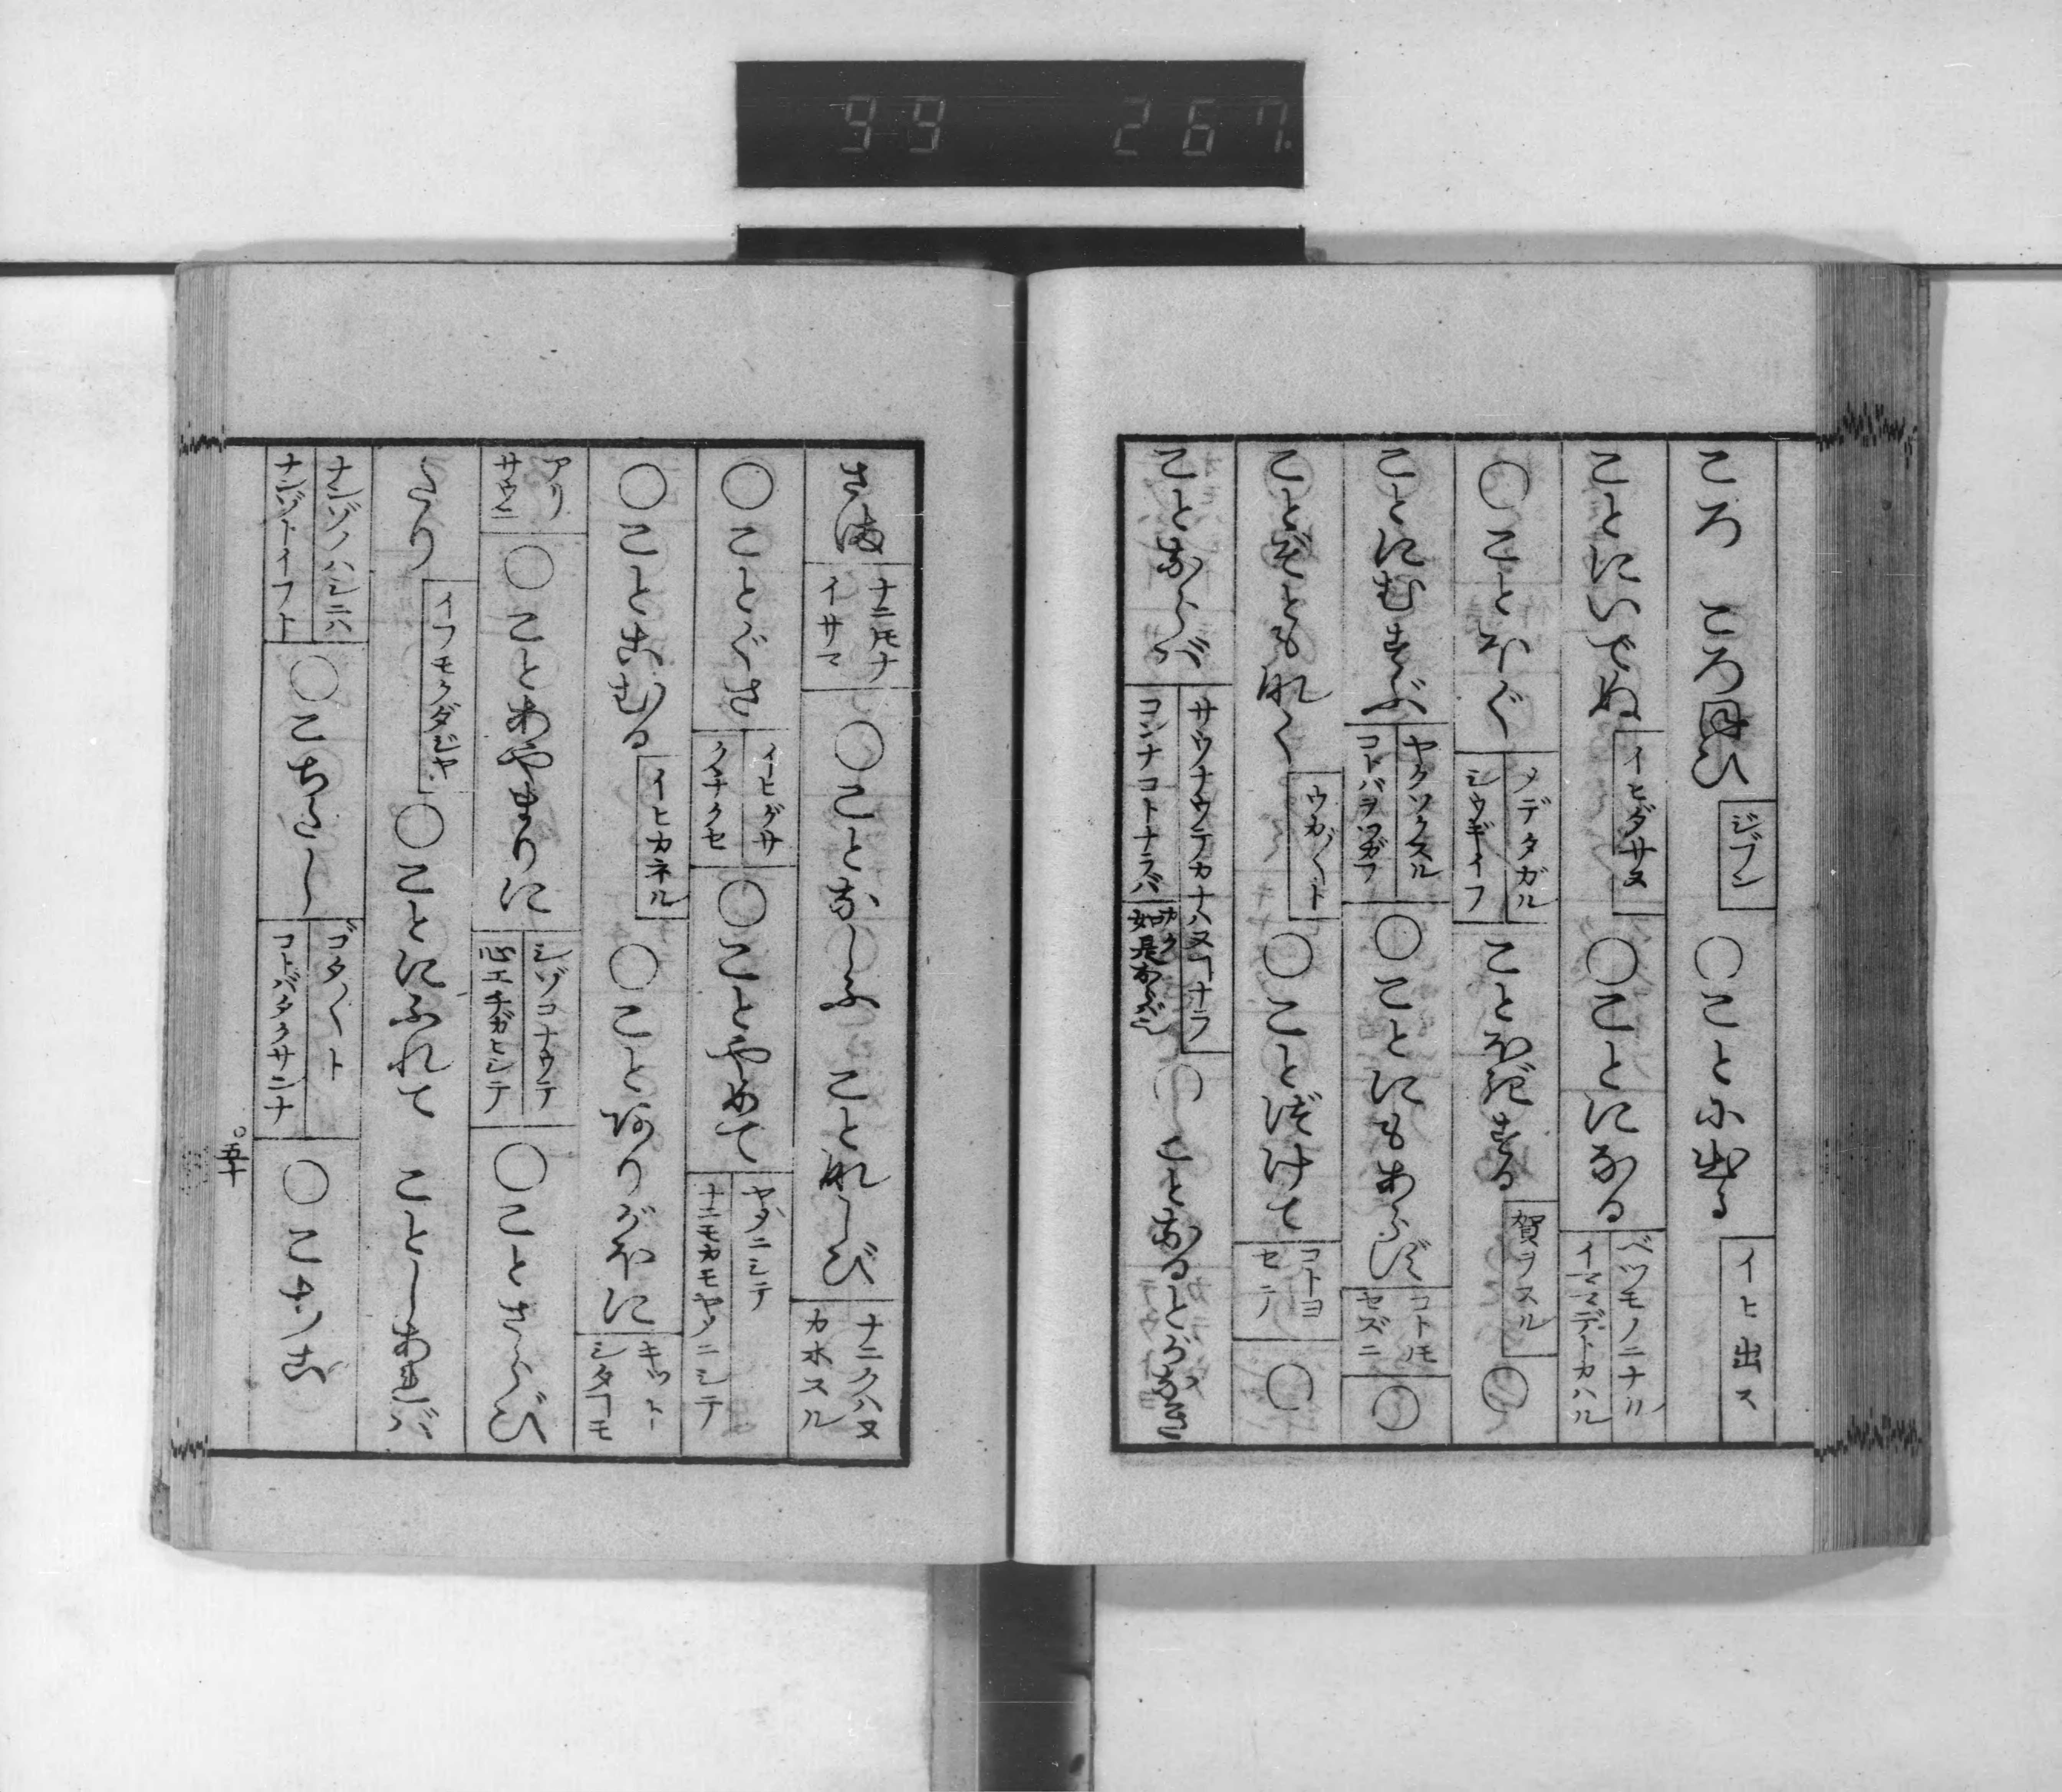 99 267.
ころ ころほひ ジブン ○ことに出る イヒ出ス
ことにいでぬ イヒダサヌ ○ことになる ベツモノニナル イママデトカハル
○ことほぐ メデタガル シウギイフ ことほぎする 賀ヲスル ○
ことにむすぶ ヤクソクスル コトバヲツガフ ○ことにもあらず コトノモセズニ ○
ことぞともなく ウカ〱ト ○ことずけて コトヨセテ ○
ことならば サウナウテカナハヌコナラ コンナコトナラバ 如是ならば ○
さま ナニモナイサマ ○ことなしふ ことなしび ナニクハヌカホスル
○ことぐさ イヒグサ クチクセ ○ことやめて ヤメニシテ ナニモカモヤメニシテ
○ことこむる イヒカネル ○ことありがほに キツトシタコモ
アリサウニ ○ことあやまりに シゾコナウテ 心エチガヒシテ ○ことさらび
たり イフモクダジヤ ○ことにふれて ことしあれば
ナンゾノハシニハ ナンゾトイフト ○こちたし ゴタ〱ト コトバタクサンナ ○こ
五十